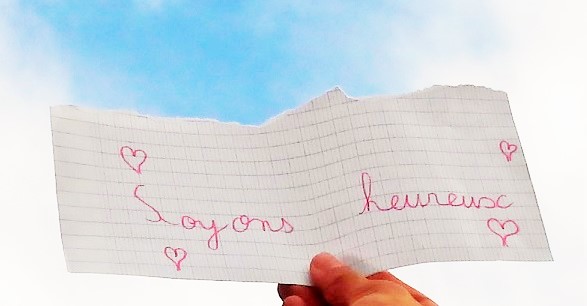 Soyons heureux